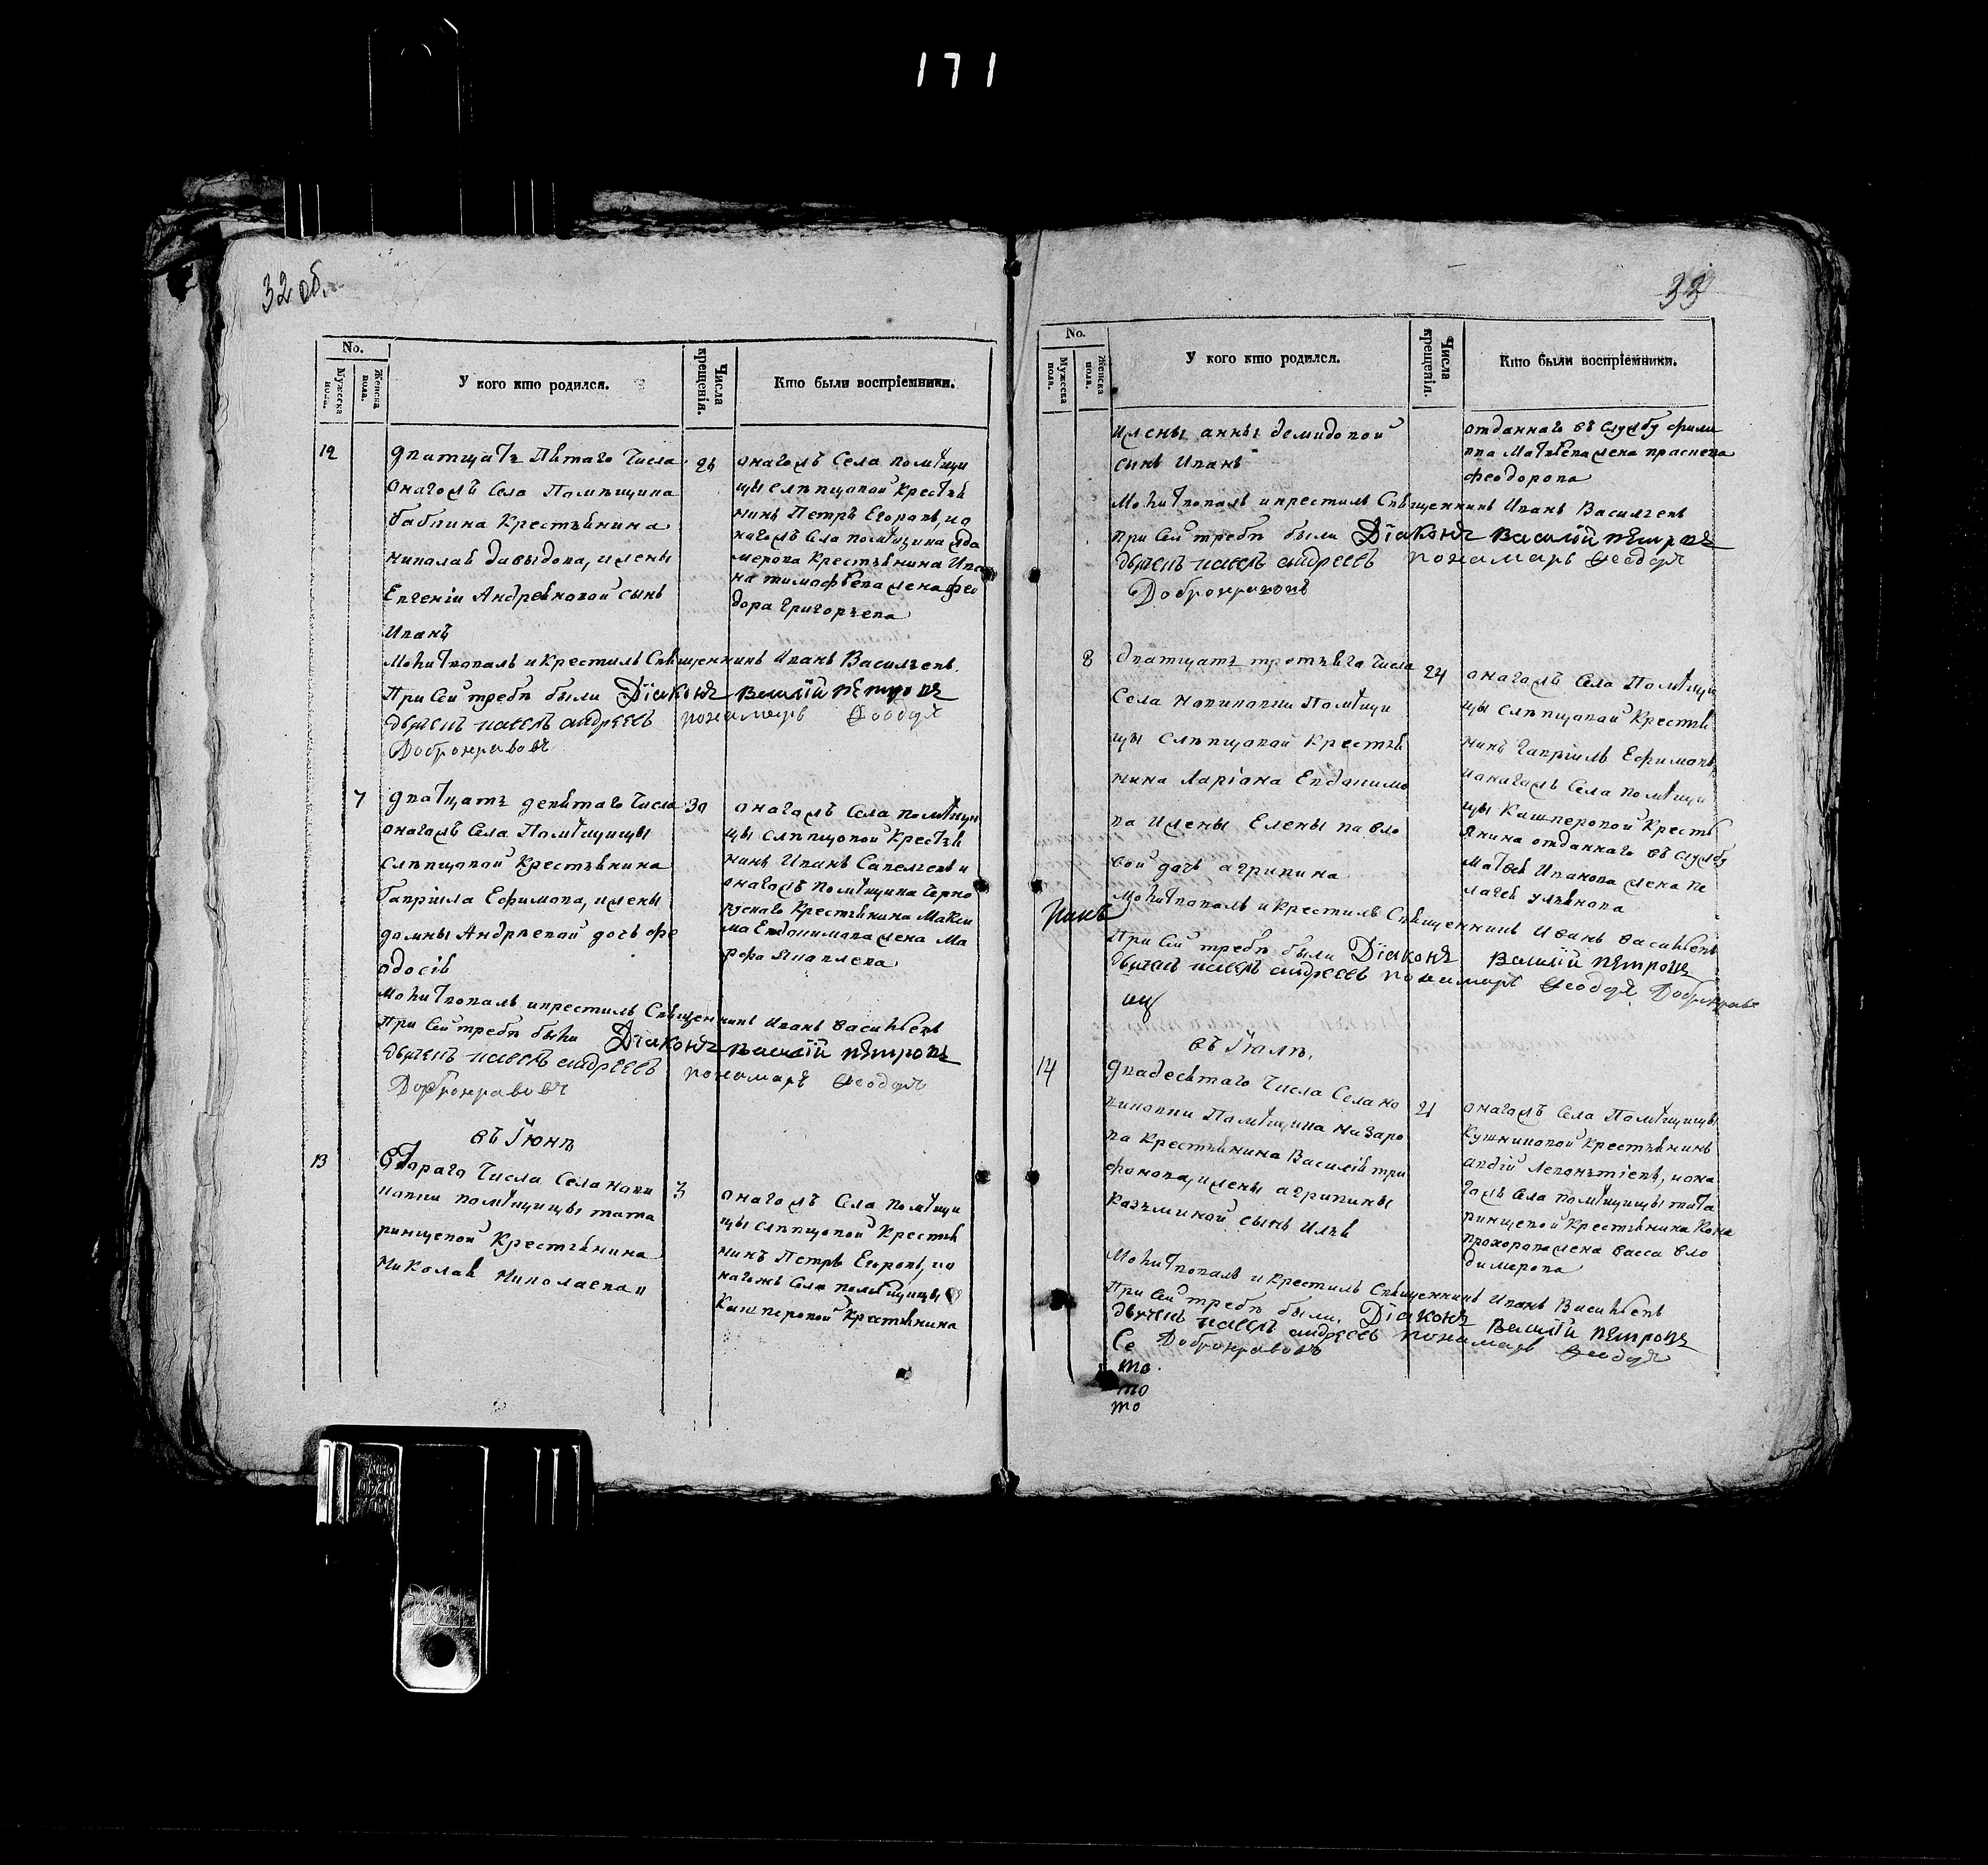 171
32 об.
No.
Мужеска пола.
Женска пола.
У кого кто родился.
Числа крещенія.
Кто были воспріемники.
12
дватцать пятаго числа
онагожъ села помѣщика
бабкина крестьянина
николая давыдова, и жены
Евгеніи Андреяновой сынъ
Иванъ
26
онагожъ села помѣщи
цы слѣпцовой крестья
нинъ Петръ Егоровъ, ио
нагожъ села помѣщика
мерова крестьянина Ива
на тимофѣева жена фео
дора григорьева
Молитвовалъ и крестилъ Священникъ Иванъ Васильевъ
При сей требѣ были Дїаконъ василїй пѣтровъ
дьячекъ павелъ андреевъ пономарь Ѳеодоръ
Добронравовъ
7
дватцать девятаго числа
онагожъ села Помѣщицы
слѣпцовой крестьянина
Гавріила Ефимова, и жены
домны Андрѣевой дочь фе
одосія
30
онагожъ села помѣщи
цы слѣпцовой крестья
нинъ Иванъ Савельевъ и
онагожъ помѣщика черно
рускаго крестьянина макси
ма Евдокимова жена Ма
рфа Яковлева
Молитвовалъ и крестилъ Священникъ Иванъ васильевъ
При сей требѣ были Дїаконъ василїй пѣтровъ
дьячекъ павелъ андреевъ пономарь Ѳеодоръ
Добронравовъ
въ Їюнѣ
13
Втораго числа села нови
ковки помѣщицы тата
ринцевой крестьянина
николая николаева и
3
онагожъ села помѣщи
цы слѣпцовой крестья
нинъ Петръ Егоровъ, ио
нагожъ села помѣщицы
Кашперовой крестьянина
33
No.
Мужеска пола.
Женска пола.
У кого кто родился.
Числа крещенія.
Кто были воспріемники.
и жены анны демидовой
сынъ Иванъ
отданнаго въ службу фили
ппа Матвѣева жена прасковя
феодорова
Молитвовалъ и крестилъ Священникъ Иванъ Васильевъ
при сей требѣ были Дїаконъ василїй пѣтровъ
дьячекъ павелъ андреевъ пономарь Ѳеодоръ
Добронравовъ
8
дватцать третьяго числа
села новиковки Помѣщи
цы слѣпцовой крестья
нина Ларіона Евдокимо
ва и жены Елены павло
вой дочь агрипина
24
онагожъ села Помѣщи
цы слѣпцовой крестья
нинъ гавріилъ Ефимовъ,
ионагожъ села помѣщи
цы Кашперовой кресть
янина отданнаго въ службу
матвѣя Иванова жена пе
лагея ульянова
Молитвовалъ и крестилъ Священникъ Иванъ васильевъ
При сей требѣ были Дїаконъ василїй пѣтровъ
дьячекъ павелъ андреевъ пономарь Ѳеодоръ Доброправо
въ Їюлѣ.
14
двадесятаго числа села но
виковки Помѣщика назаро
ва крестьянина Василія три
фонова, и жены агрипины
казьминой сынъ Илья
21
онагожъ села Помѣщицы
Кушниковой крестьянинъ
авдїй Леонътіевъ, иона
гожъ села помѣщицы тата
ринцевой крестьянина кона
прохорова жена васса вло
димерова
Молитвовалъ и крестилъ Священникъ Иванъ Васильевъ
При сей требѣ были, Дїаконъ василїй пѣтровъ
дьячекъ павелъ андреевъ пономарь Ѳеодоръ
Се Доброправовъ
то
то
то